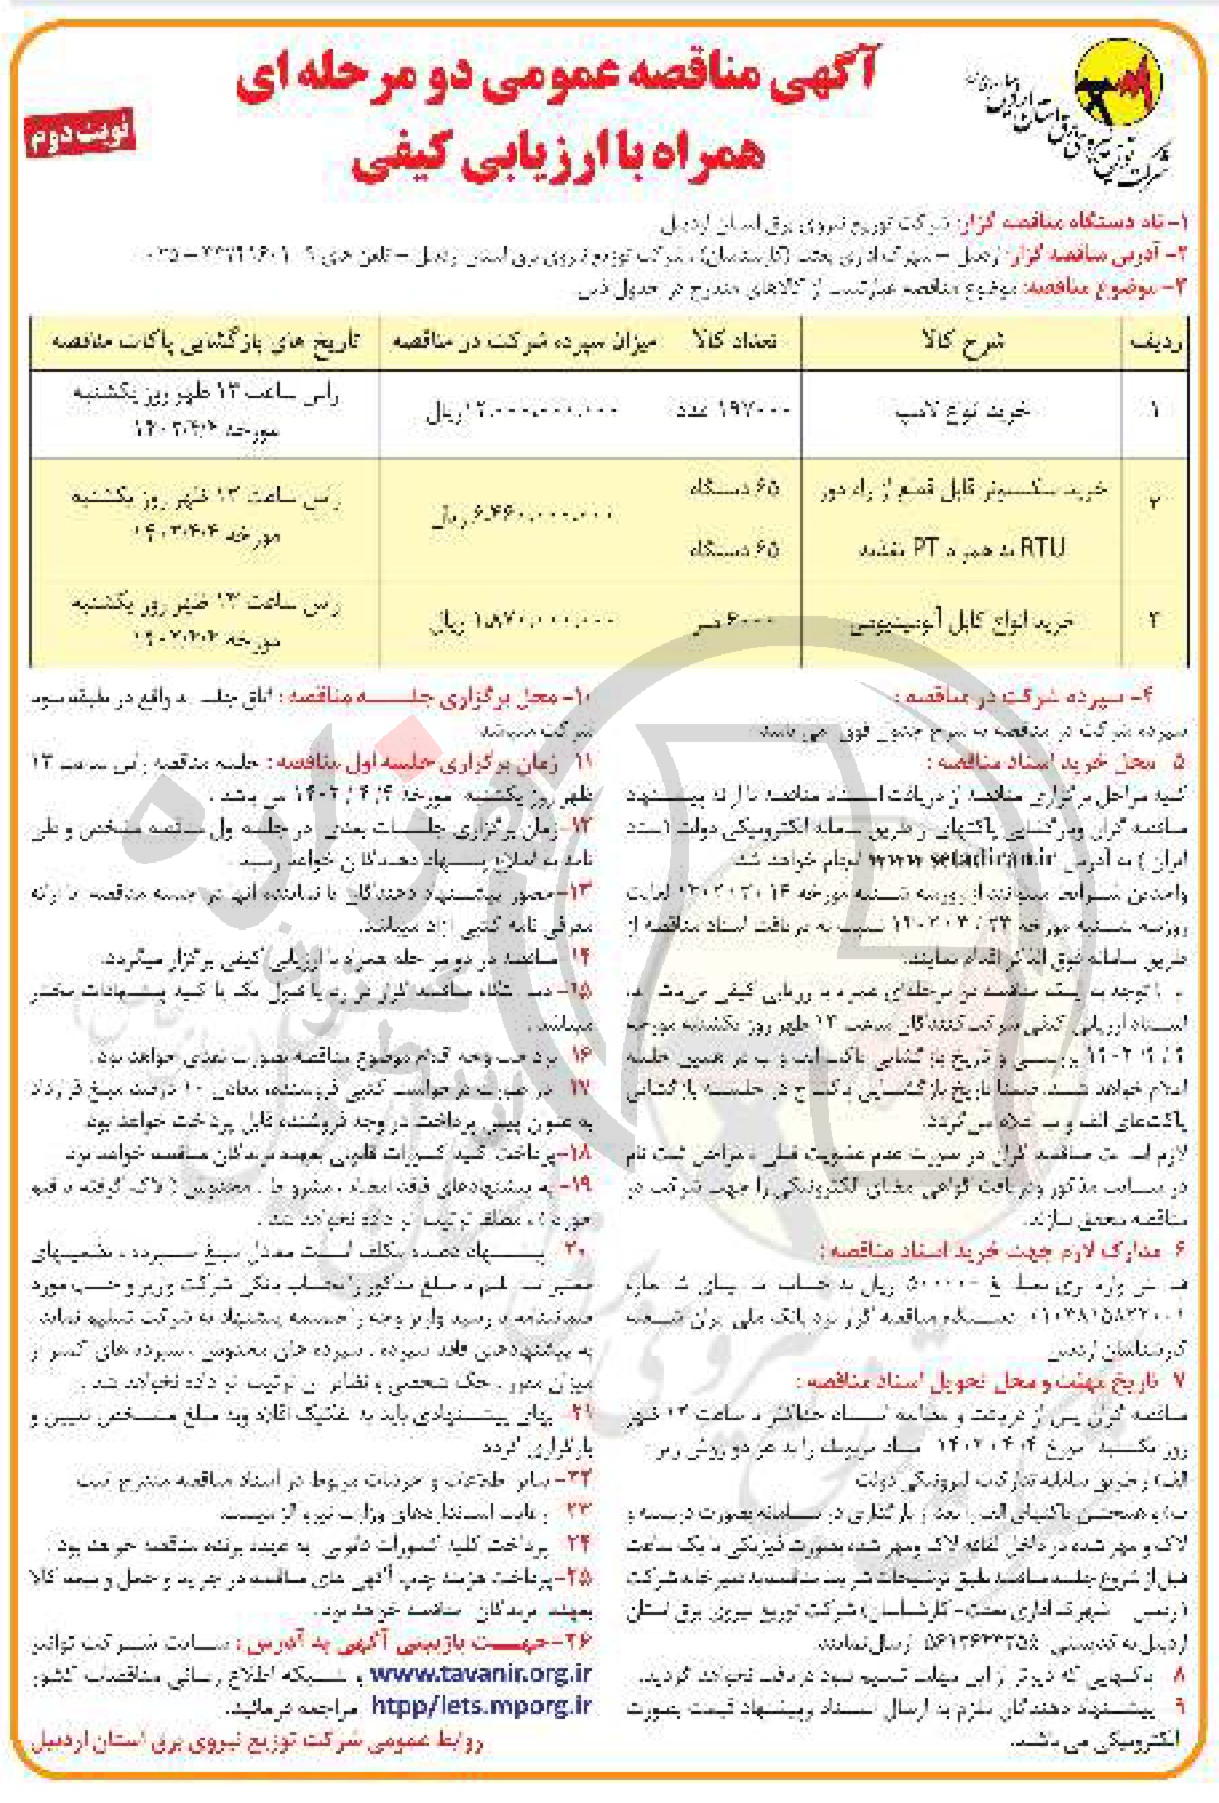 آگهی مناقصه عمومی دو مرحله ای
همراه با ارزیابی کیفی
نوبت دوم
شرکت توزیع نیروی برق استان اردبیل
۱- نام دستگاه مناقصه گزار: شرکت توزیع نیروی برق استان اردبیل
۲- آدرس مناقصه گزار: اردبیل - شهرک اداری بعثت (کارشناسان) شرکت توزیع نیروی برق استان اردبیل - تلفن های
۳- موضوع مناقصه: موضوع مناقصه عبارتست از کالاهای مندرج در جدول ذیل
ردیف شرح کالا تعداد کالا میزان سپرده شرکت در مناقصه تاریخ های بازگشایی پاکات مناقصه
۱ خرید انواع لامپ ۱۹۷۰۰۰ عدد ریال راس ساعت ۱۳ ظهر روز یکشنبه
مورخه ۱۴۰۲/۴/۴
۲ خرید سکسیونر قابل قطع از راه دور ۶۵ دستگاه ۶،۴۶۰،۰۰۰،۰۰۰ ریال راس ساعت ۱۳ ظهر روز یکشنبه
RTU به همراه PT تغذیه ۶۵ دستگاه مورخه ۱۴۰۲/۴/۴
۳ خرید انواع کابل آلومینیومی ۶۰۰۰ متر ۱،۸۷۰،۰۰۰،۰۰۰ ریال راس ساعت ۱۳ ظهر روز یکشنبه
مورخه ۱۴۰۲/۴/۴
۴- سپرده شرکت در مناقصه :
سپرده شرکت در مناقصه به شرح جدول فوق می باشد
۵ محل خرید اسناد مناقصه :
کلیه مراحل برگزاری مناقصه از دریافت اسناد مناقصه تا ارائه پیشنهاد
مناقصه گران و بازگشایی پاکتهای از طریق سامانه الکترونیکی دولت (ستاد
ایران ) به آدرس www.setadiran.ir انجام خواهد شد
واجدین شرایط میتوانند از روز سه شنبه مورخه لغایت
روز سه شنبه مورخه نسبت به دریافت اسناد مناقصه از
طریق سامانه فوق الذکر اقدام نمایند.
با توجه به اینکه مناقصه دو مرحله‌ای همراه با ارزیابی کیفی می‌باشد
اسناد ارزیابی کیفی شرکت‌کنندگان ساعت ۱۳ ظهر روز یکشنبه مورخه
بررسی و تاریخ بازگشایی پاکت الف و ب در همین جلسه
اعلام خواهد شد. ضمنا تاریخ بازگشایی پاکت ج در جلسه بازگشایی
پاکت‌های الف و ب اعلام می‌گردد.
لازم است مناقصه گران در صورت عدم عضویت قبلی مراحل ثبت نام
در سایت مذکور و دریافت گواهی امضای الکترونیکی را جهت شرکت در
مناقصه محقق سازند.
۶ مدارک لازم جهت خرید اسناد مناقصه :
فیش واریزی بمبلغ ۵۰۰۰۰۰ ریال به حساب سیبای شماره
دستگاه مناقصه گزار نزد بانک ملی ایران شعبه
کارشناسان اردبیل
۷ تاریخ مهلت و محل تحویل اسناد مناقصه :
مناقصه گران پس از دریافت و مطالعه اسناد حداکثر تا ساعت ۱۳ ظهر
روز یکشنبه مورخ ۱۴۰۲/۰۴/۰۴ اسناد مربوطه را به هر دو روش زیر:
الف) از طریق سامانه تدارکات الکترونیکی دولت
ب) و همچنین پاکتهای الف را بعد از بارگذاری در سامانه بصورت دربسته و
لاک و مهر شده در داخل لفافه لاک و مهر شده بصورت فیزیکی تا یک ساعت
قبل از شروع جلسه مناقصه طبق توضیحات شرایط مناقصه به دبیرخانه شرکت
(اردبیل - شهرک اداری بعثت - کارشناسان) شرکت توزیع نیروی برق استان
اردبیل به کدپستی ارسال نمایند
۸ پاکتهایی که دیرتر از این مهلت تسلیم شود دریافت نخواهد گردید.
۹ پیشنهاد دهندگان ملزم به ارسال اسناد و پیشنهاد قیمت بصورت
الکترونیکی می باشند.
۱۰- محل برگزاری جلسه مناقصه : اتاق جلسه واقع در طبقه سوم
شرکت میباشد
۱۱ زمان برگزاری جلسه اول مناقصه : جلسه مناقصه راس ساعت ۱۳
ظهر روز یکشنبه مورخه ۱۴۰۲/۴/۴ می باشد .
۱۲- زمان برگزاری جلسات بعدی در جلسه اول مناقصه مشخص و طی
نامه به اطلاع پیشنهاد دهندگان خواهد رسید .
۱۳- حضور پیشنهاد دهندگان یا نماینده آنها در جلسه مناقصه با ارائه
معرفی نامه کتبی آزاد میباشد.
۱۴ مناقصه در دو مرحله همراه با ارزیابی کیفی برگزار میگردد.
۱۵- دستگاه مناقصه گزار در رد یا قبول یک یا کلیه پیشنهادات مختار
میباشد .
۱۶ پرداخت وجه اقلام موضوع مناقصه بصورت نقدی خواهد بود .
۱۷ در صورت درخواست کتبی فروشنده، معادل ۱۰ درصد مبلغ قرارداد
به عنوان پیش پرداخت در وجه فروشنده قابل پرداخت خواهد بود.
۱۸- پرداخت کلیه کسورات قانونی بعهده برندگان مناقصه خواهد بود
۱۹- به پیشنهادهای فاقد امضاء ، مشروط ، مخدوش ( لاک گرفته یا قلم
خورده )، مطلقا ترتیب اثر داده نخواهد شد .
۲۰ پیشنهاد دهنده مکلف است معادل مبلغ سپرده ، تضمینهای
معتبر تسلیم یا مبلغ مذکور را بحساب بانکی شرکت واریز و حسب مورد
ضمانتنامه یا رسید واریز وجه را ضمیمه پیشنهاد به شرکت تسلیم نماید
به پیشنهادهای فاقد سپرده ، سپرده های مخدوش ، سپرده های کمتر از
میزان مقرر ، چک شخصی و نظائر آن ترتیب اثر داده نخواهد شد .
۲۱ بهای پیشنهادی باید به تفکیک اقلام و به مبلغ مشخص تعیین و
بارگزاری گردد
۲۲- سایر اطلاعات و جزئیات مربوط در اسناد مناقصه مندرج است
۲۳ رعایت استانداردهای وزارت نیرو الزامیست
۲۴ پرداخت کلیه کسورات قانونی به عهده برنده مناقصه خواهد بود .
۲۵- پرداخت هزینه چاپ آگهی های مناقصه در جراید و حمل و بیمه کالا
بعهده برندگان مناقصه خواهد بود .
۲۶- جهت بازبینی آگهی به آدرس : سایت شرکت توانیر
www.tavanir.org.ir و شبکه اطلاع رسانی مناقصات کشور
htpp/iets.mporg.ir مراجعه فرمائید.
روابط عمومی شرکت توزیع نیروی برق استان اردبیل